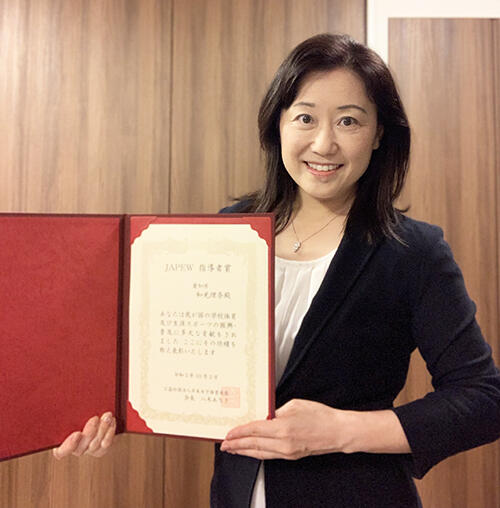 JAPEW 指導者賞
愛知県
和光理奈殿
あなたは我が国の学校体育
及び生涯スポーツの振興・
普及に多大な貢献をされ
ました ここにその功績を
称え表彰いたします
令和2年10月3日
会長 八木ありさ